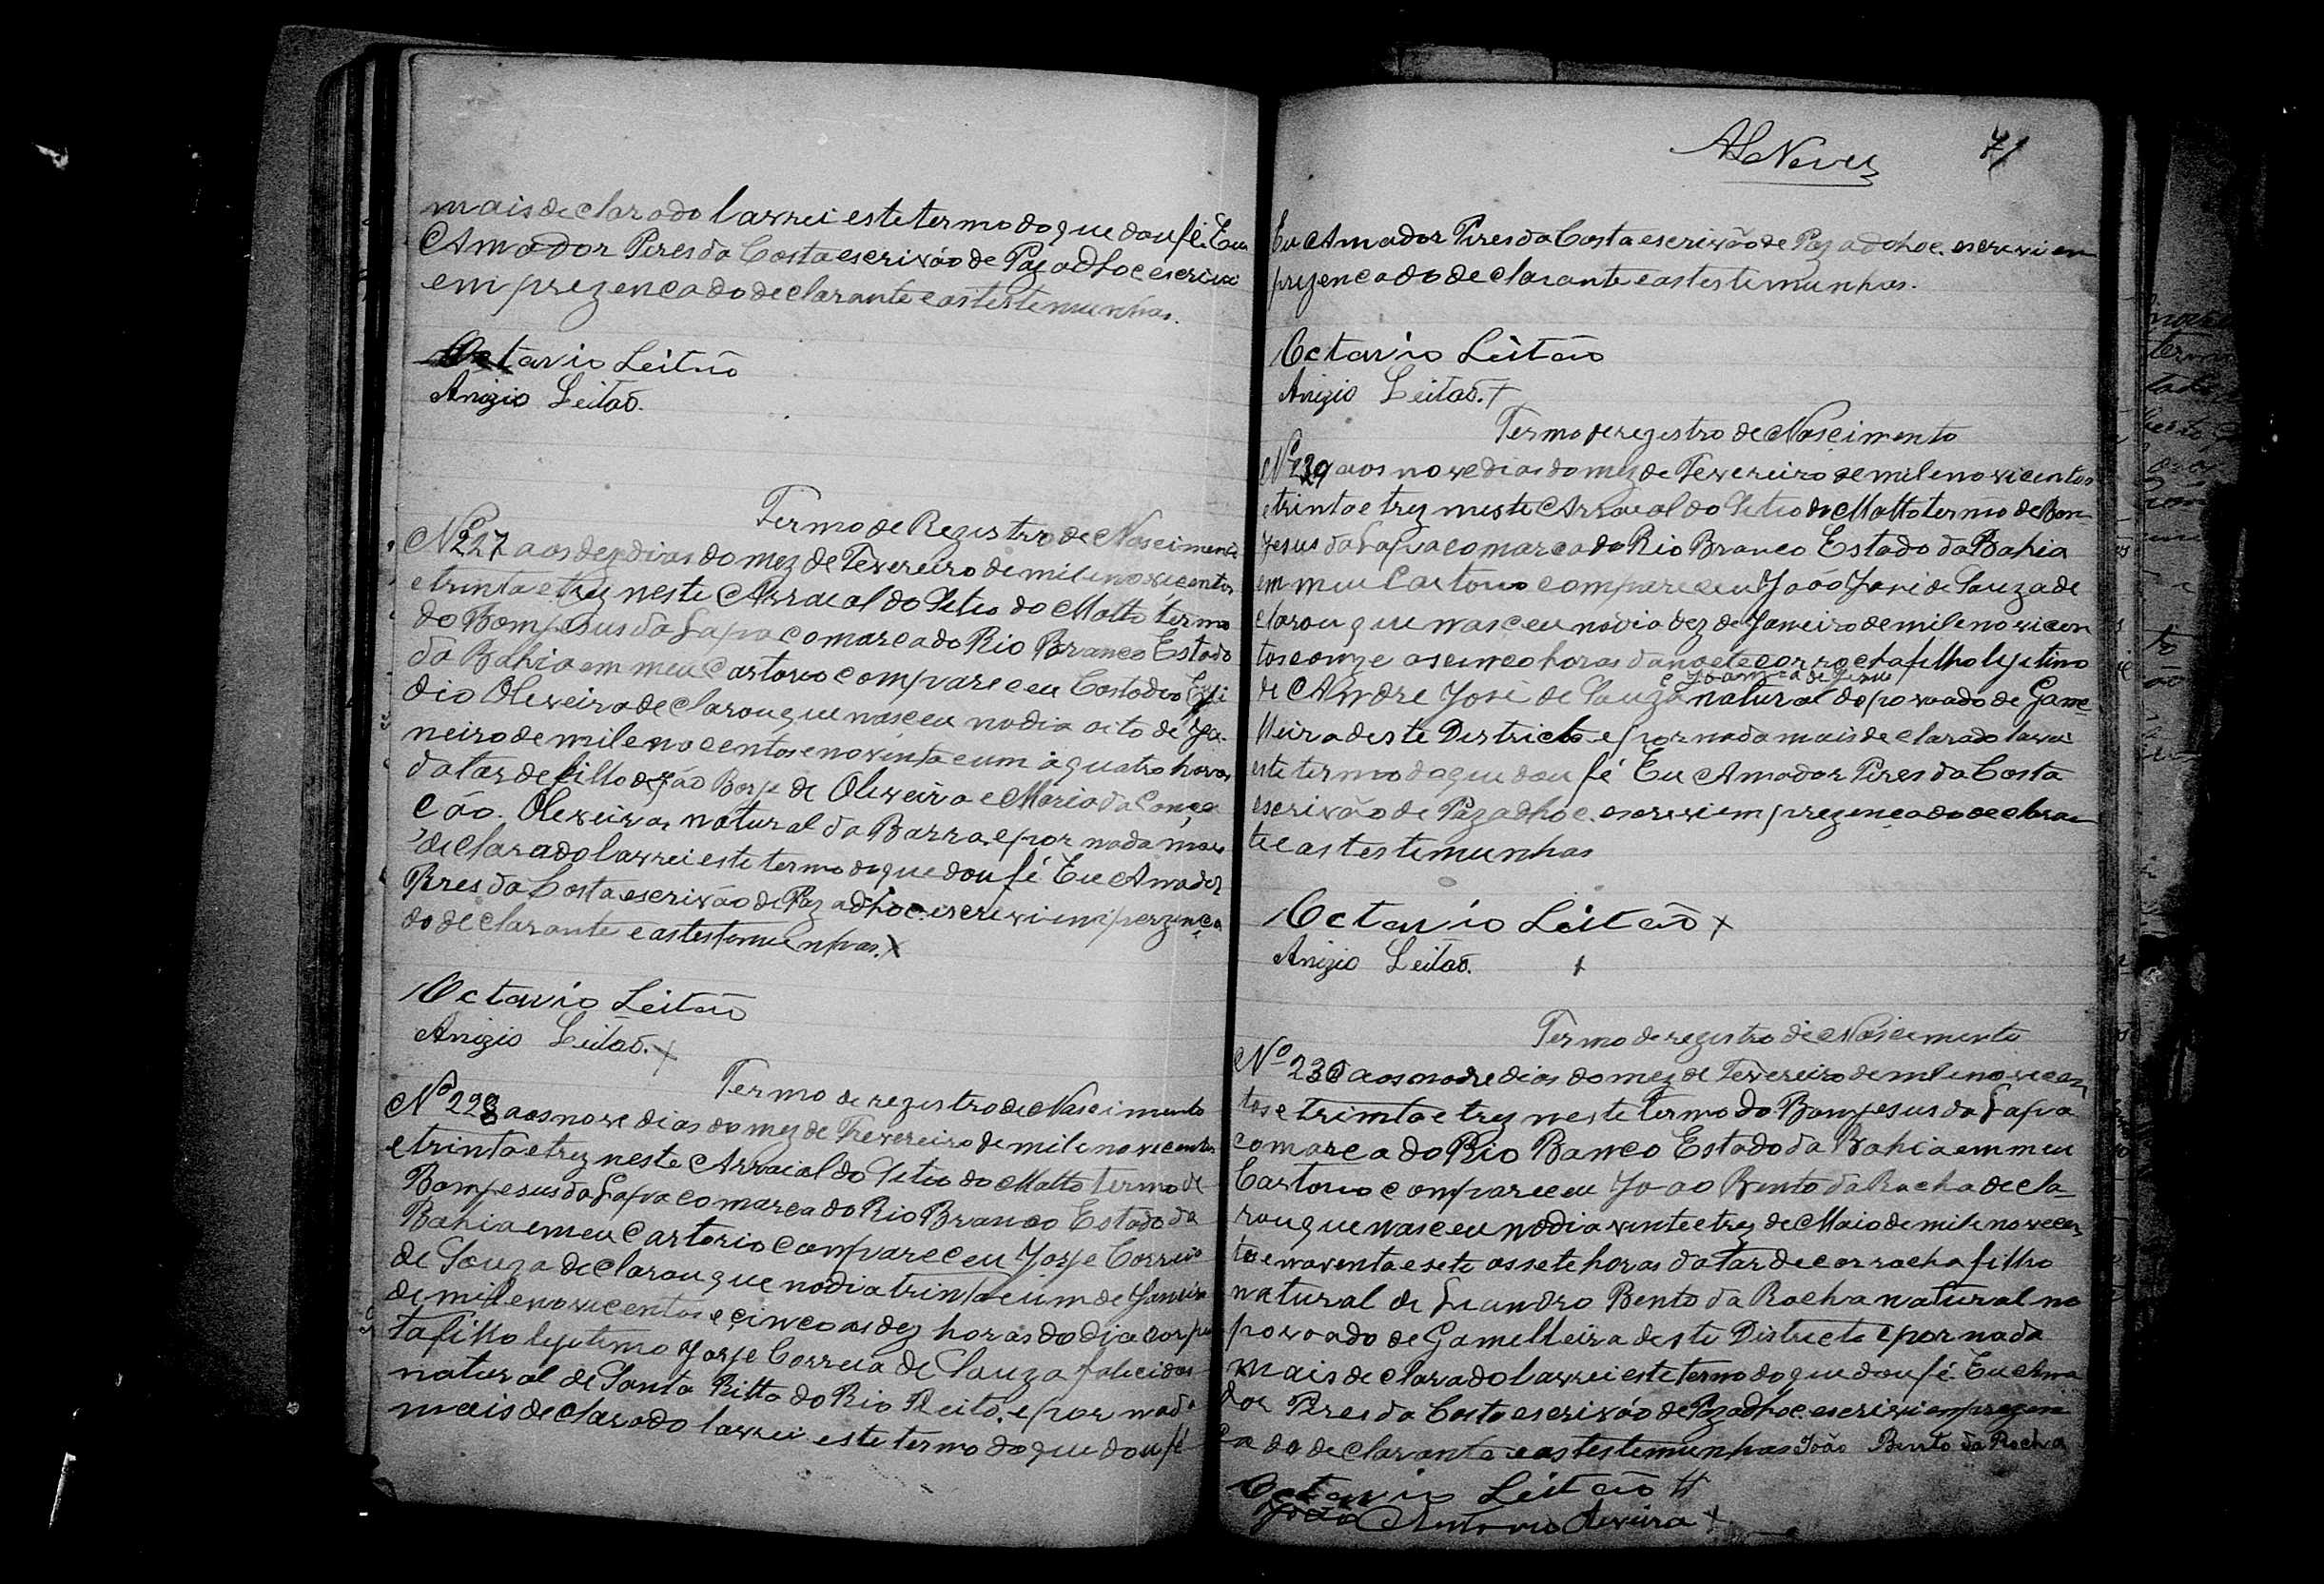 mais declarado lavrei este termo do que dou fé. Eu
Amador Pires da Costa escrivão de Paz adhoc escrivi
em prezenca do declarante e as testemunhas.
Octavio Leitão
Anizio Leitão.
Termo de Registro de Nascimento
Nº 227 aos dez dias do mez de Fevereiro de mil e novicentos
e trinta e trez neste Arraial do Sitio do Matto termo
do Bom Jesus da Lapa comarca do Rio Branco Estado
da Bahia em meu Cartorio compareceu Costodio Egi
dio Oliveira declarou que nasceu no dia oito de Ja
neiro de mil e nocentos e novinta e um à quatro horas
da tarde filho de João Borge de Oliveira e Maria da Conçe
ção. Oliveira, natural da Barra, e por nada mais
declarado lavrei este termo do que dou fé Eu Amador
Pires da Costa escrivão de Paz adhoc escrevi em perzença
do declarante e as testemunhas. X
Octavio Leitão
Anizio Leitão. X
Termo de registro de Nascimento
Nº 228 aos nove dias do mez de Fevereiro de mil e novecentos
e trinta e trez neste Arraial do Sitio do Matto termo de
Bom Jesus da Lapa comarca do Rio Branco Estado da
Bahia em meu Cartorio compareceu Jorge Correia
de Souza declarou que no dia trinta e um de Janeiro
de mil e novicentos e cinco as dez horas do dia cor
ta filho legitimo Jorge Correia de Souza falicidos
natural de Santa Ritta do Rio Preito, e por nada
mais declarado lavrei este termo do que dou fé
ALNeves
71
Eu Amador Pires da Costa escrivão de Paz adhoc. escrevi em
prezenca do declarante e as testemunhas.
Octavio Leitão
Anizio Leitão. +
Termo de registro de Nascimento
Nº 229 aos nove dias do mez de Fevereiro de mil e novicentos
e trinta e trez neste Arraial do Sitio do Matto termo de Bom
Jesus da Lapa comarca do Rio Branco Estado da Bahia
em meu Cartorio compareceu João José de Souza de
clarou que nasceu no dia dez de Janeiro de mil e novicen
tos e onze as cinco horas da noete cor rocha filho legitimo
de Andre José de Souza e Joanna de Jesus natural do povoado de Game
lleira deste Districto e por nada mais declarado lavrei
este termo do que dou fé Eu Amador Pires da Costa
escrivão de Paz adhoc. escrevi em prezença do declaran
te e as testemunhas
Octavio Leitão X
Anizio Leitão. +
Termo de registro de Nascimento
Nº 230 aos nove dias do mez de Fevereiro de mil e novecen
tos e trinta e trez neste termo do Bom Jesus da Lapa
comarca do Rio Banco Estado da Bahia em meu
Cartorio compareceu João Bento da Rocha decla
rou que nasceu no dia vinte e trez de Maio de mil e novecen
tos e noventa e sete as sete horas da tarde cor rocha filho
natural de Liandro Bento da Rocha natural no
povoado de Gamelleira deste Districto e por nada
mais declarado lavrei este termo do que dou fé. Eu Ama
dor Pires da Costa escrivão de Paz adhoc. escrivi em prezen
ça do declarante e as testemunhas João Bento da Rocha
Octavio Leitão
João Antonio